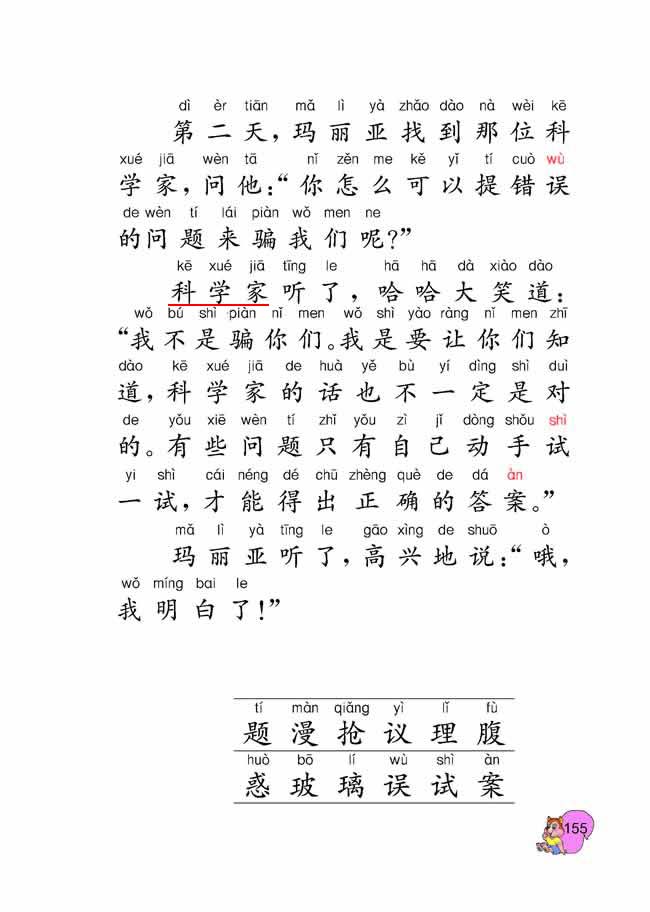 dì èr tiān mǎ lì yà zhǎo dào nà wèi kē
第二天，玛丽亚找到那位科
xué jiā wèn tā nǐ zěn me kě yǐ tí cuò wù
学家，问他：“你怎么可以提错误
de wèn tí lái piàn wǒ men ne
的问题来骗我们呢？”
kē xué jiā tīng le hā hā dà xiào dào
科学家听了，哈哈大笑道：
wǒ bú shì piàn nǐ men wǒ shì yào ràng nǐ men zhī
“我不是骗你们。我是要让你们知
dào kē xué jiā de huà yě bù yí dìng shì duì
道，科学家的话也不一定是对
de yǒu xiē wèn tí zhǐ yǒu zì jǐ dòng shǒu shì
的。有些问题只有自己动手试
yi shì cái néng dé chū zhèng què de dá àn
一试，才能得出正确的答案。”
mǎ lì yà tīng le gāo xìng de shuō ò
玛丽亚听了，高兴地说：“哦，
wǒ míng bai le
我明白了！”
tí màn qiǎng yì lǐ fù
题漫抢议理腹
huò bō lí wù shì àn
惑玻璃误试案
155